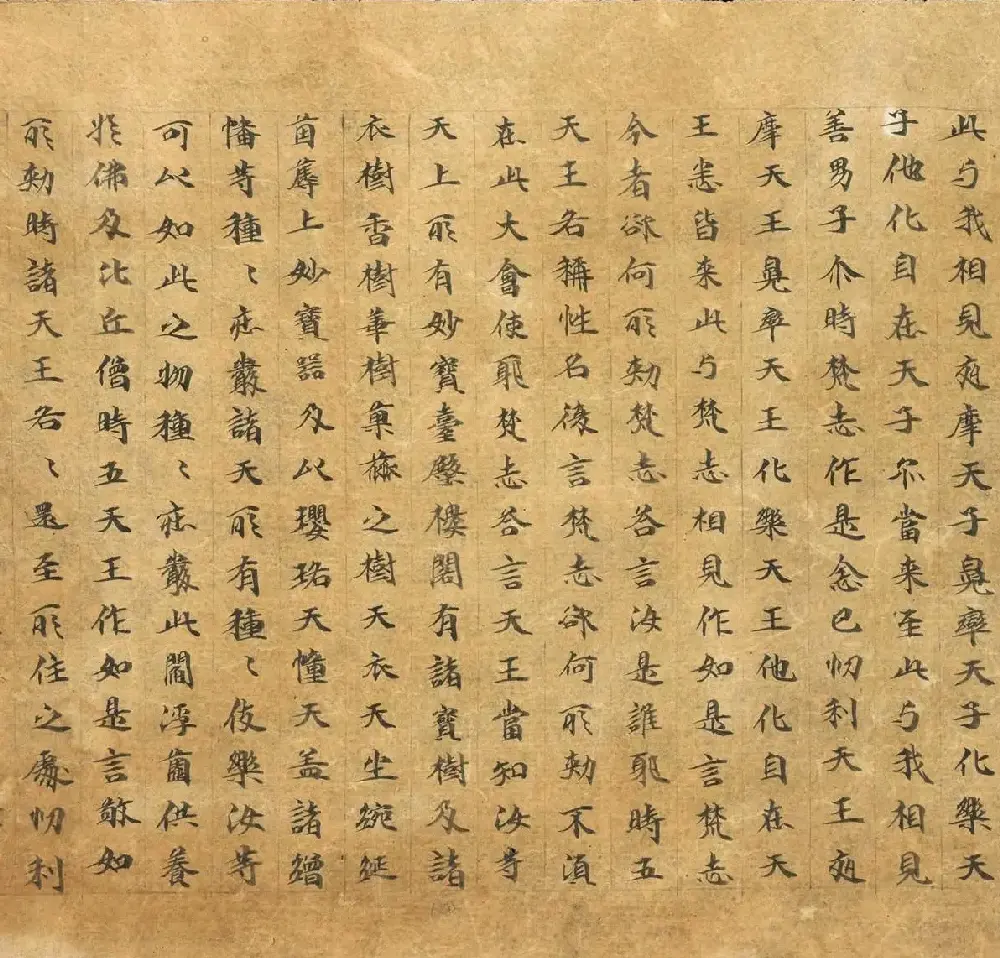 此与我相見夜摩天子兜率天子化樂天
子他化自在天子尒當来至此与我相見
善男子尒時梵志作是念已忉利天王夜
摩天王兜率天王化樂天王他化自在天
王悉皆来此与梵志相見作如是言梵志
今者欲何所勑梵志荅言汝是誰耶時五
天王各稱性名後言梵志欲何所勑不湏
在此大會使耶梵志荅言天王當知汝等
天上所有妙寶臺殿樓閣有諸寶樹及諸
衣樹香樹華樹菓藥之樹天衣天坐綩綖
茵蓐上妙寶器及以瓔珞天幢天盖諸繒
幡等種〻庄嚴諸天所有種〻伎樂汝等
可以如此之物種〻庄嚴此閻浮薗供養
於佛及比丘僧時五天王作如是言敬如
所勑時諸天王各〻還至所住之處忉利